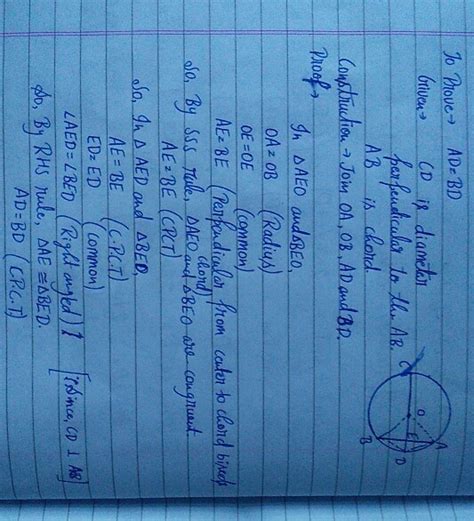 To Prove → AD = BD
Given → CD is diameter
perpendicular to the AB.
AB is chord.
Construction → Join OA, OB, AD and BD.
Proof →
In △AEO and △BEO,
OA = OB (Radius)
OE = OE (common)
AE = BE (Perpendicular from center to chord bisects
chord)
So, By SSS rule, △AEO and △BEO are congruent.
AE = BE (CPCT)
So, In △AED and △BED,
AE = BE (C.P.C.T)
ED = ED (common)
∠AED = ∠BED (Right angled) [Since, CD ⊥ AB]
So, By RHS rule, △AE ≅ △BED.
AD = BD (C.P.C.T)
C
O
A
E
D
B